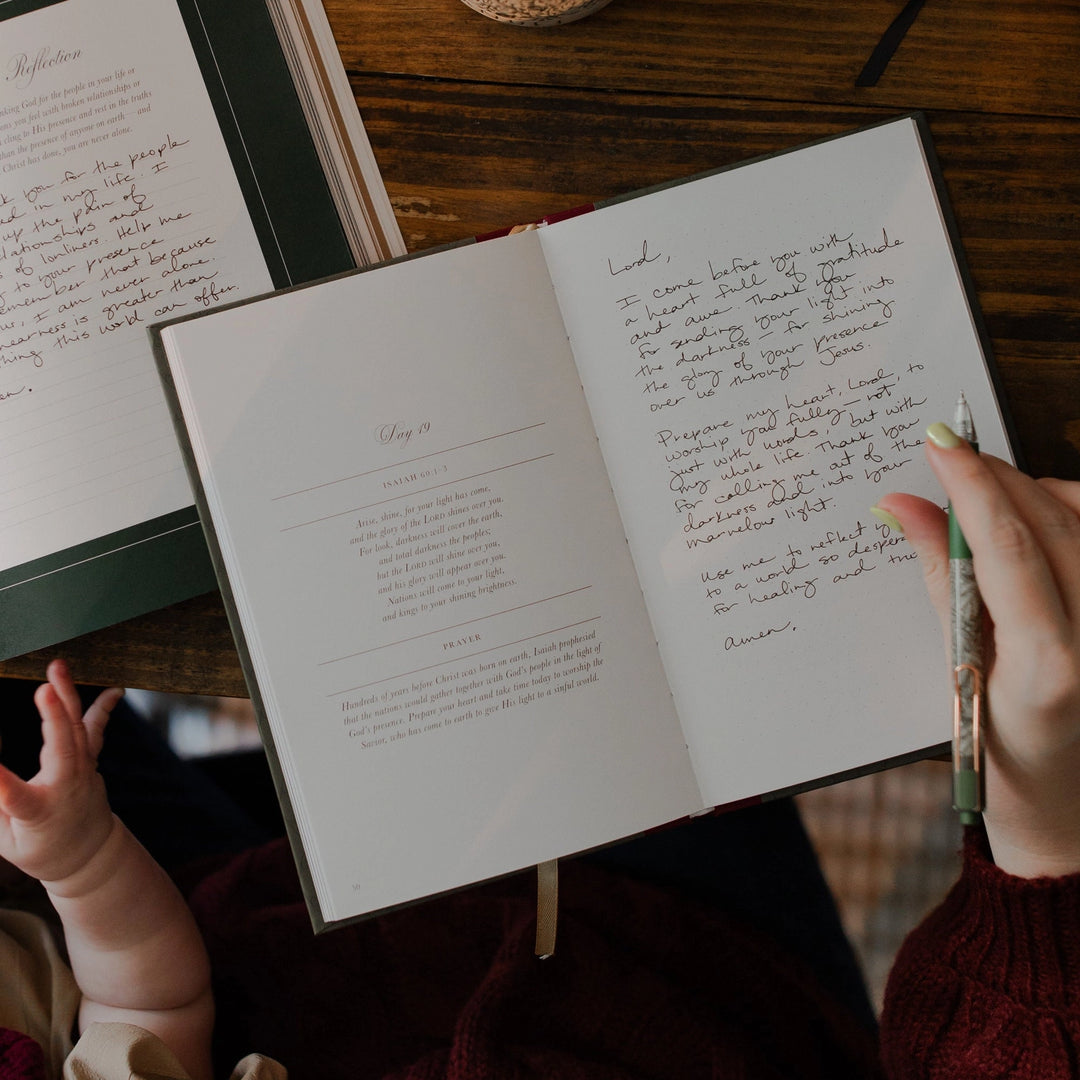 Reflection
nking God for the people in your life or
ns you feel with broken relationships or
cling to His presence and rest in the truths
than the presence of anyone on earth—and
Christ has done, you are never alone.
k you for the people
ed in my life. I
up the pain of
elationships and
s of lonliness. Help me
g to your presence
emember that because
us, I am never alone.
nearness is greater than
thing this world can offer.
en.
Day 19
ISAIAH 60:1-3
Arise, shine, for your light has come,
and the glory of the LORD shines over you.
For look, darkness will cover the earth,
and total darkness the peoples;
but the LORD will shine over you,
and his glory will appear over you.
Nations will come to your light,
and kings to your shining brightness.
PRAYER
Hundreds of years before Christ was born on earth, Isaiah prophesied
that the nations would gather together with God's people in the light of
God's presence. Prepare your heart and take time today to worship the
Savior, who has come to earth to give His light to a sinful world.
56
Lord,
I come before you with
a heart full of gratitude
and awe. Thank you
for sending your light into
the darkness – for shining
the glory of your presence
over us through Jesus.
Prepare my heart, Lord, to
worship you fully – not
just with words, but with
my whole life. Thank you
for calling me out of the
darkness and into your
marvelous light.
Use me to reflect y
to a world so despera
for healing and tru
Amen.